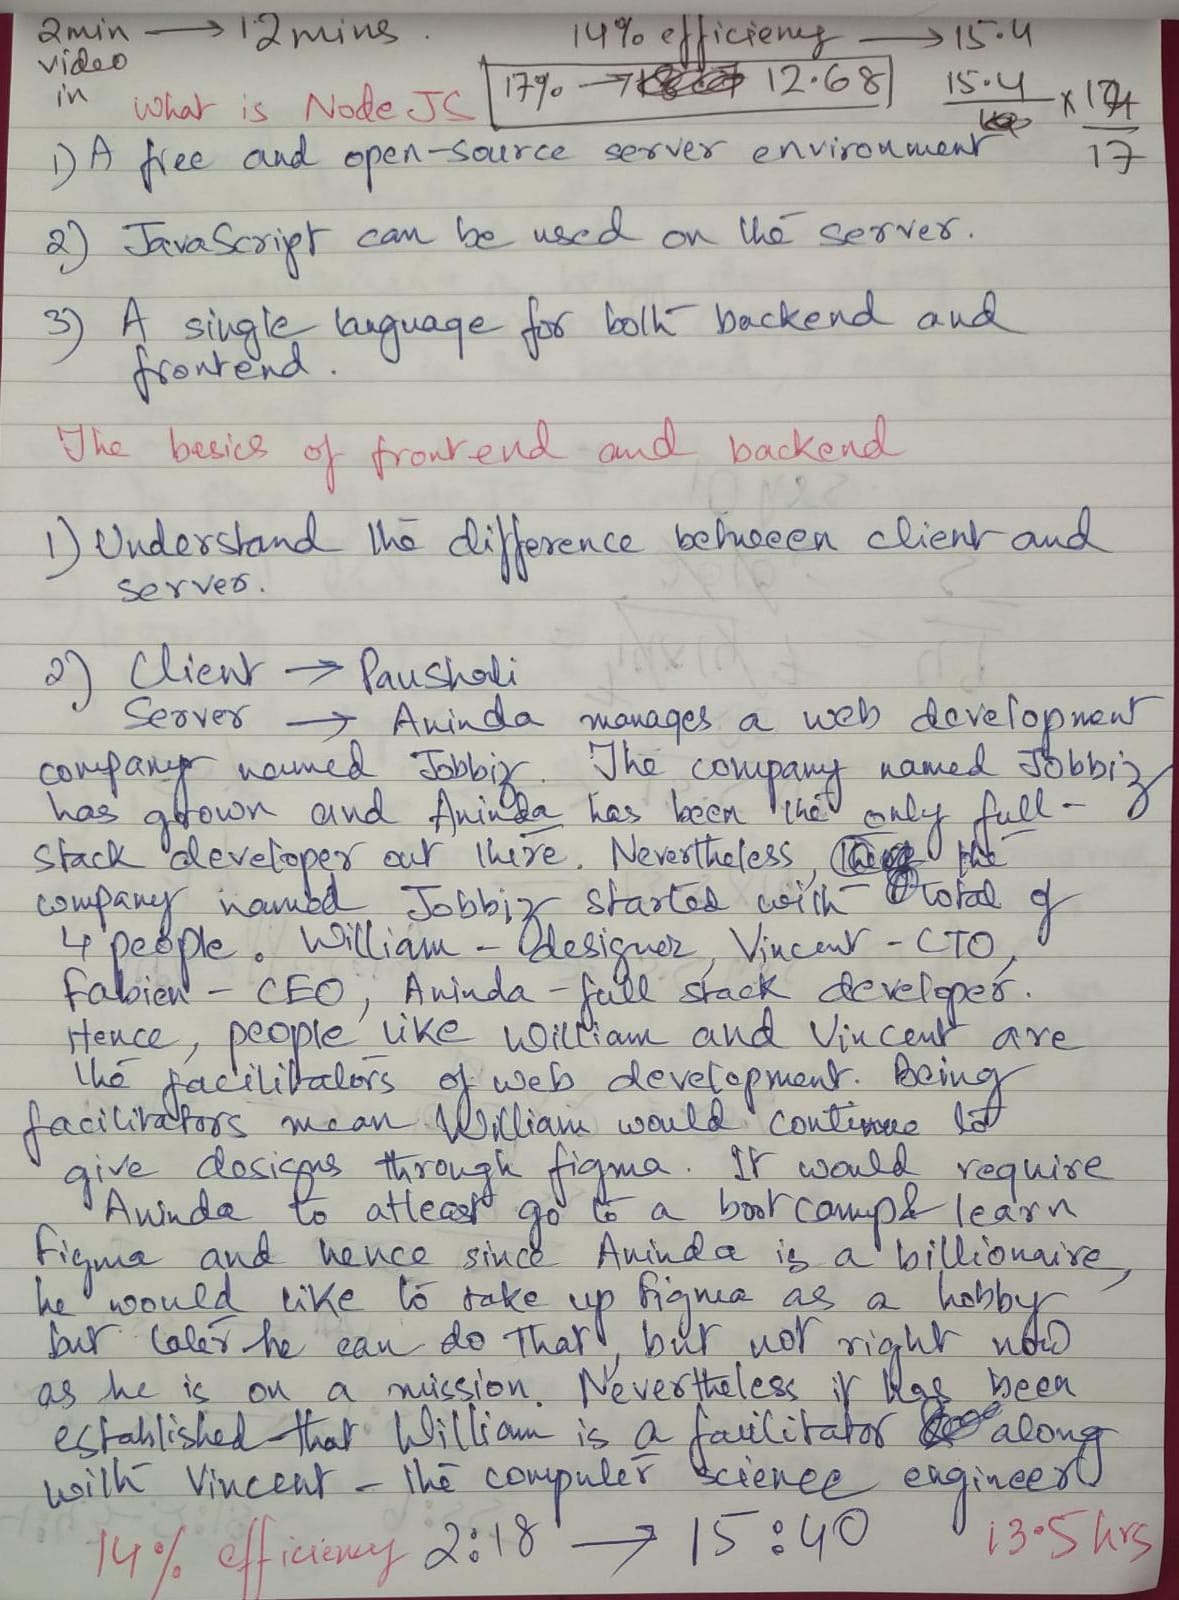 2min → 12mins. 14% efficieny → 15.4
video
in
17% → 12.68
15.4 × 14
17
What is Node JS
1) A free and open-source server environment
2) JavaScript can be used on the server.
3) A single language for both backend and
frontend.
The basics of frontend and backend
1) Understand the difference between client and
server.
2) Client → Paushali
Server → Aninda manages a web development
company named Jobbiz. The company named Jobbiz
has grown and Aninda has been the only full-
stack developer out there. Nevertheless, the
company named Jobbiz started with total of
4 people. William - designer, Vincent - CTO,
Fabien - CEO, Aninda - full stack developer.
Hence, people like William and Vincent are
the facilitators of web development. Being
facilitators mean William would continue to
give designs through figma. It would require
Aninda to atleast go to a bootcamp & learn
Figma and hence since Aninda is a billionaire,
he would like to take up Figma as a hobby
but later he can do that, but not right now
as he is on a mission. Nevertheless it has been
established that William is a facilitator along
with Vincent - the computer science engineer
14% efficiency 2:18 → 15:40 13.5 hrs